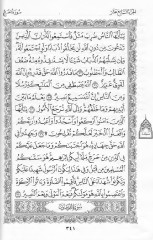 الجزء السابع عشر
سورة الحج
يَٰٓأَيُّهَا ٱلنَّاسُ ضُرِبَ مَثَلٌ فَٱسْتَمِعُوا۟ لَهُۥٓ إِنَّ ٱلَّذِينَ
تَدْعُونَ مِن دُونِ ٱللَّهِ لَن يَخْلُقُوا۟ ذُبَابًا وَلَوِ ٱجْتَمَعُوا۟ لَهُۥ
وَإِن يَسْلُبْهُمُ ٱلذُّبَابُ شَيْـًٔا لَّا يَسْتَنقِذُوهُ مِنْهُ ضَعُفَ
ٱلطَّالِبُ وَٱلْمَطْلُوبُ ٧٣ مَا قَدَرُوا۟ ٱللَّهَ حَقَّ قَدْرِهِۦٓ إِنَّ ٱللَّهَ
لَقَوِىٌّ عَزِيزٌ ٧٤ ٱللَّهُ يَصْطَفِى مِنَ ٱلْمَلَٰٓئِكَةِ رُسُلًا وَمِنَ
ٱلنَّاسِ إِنَّ ٱللَّهَ سَمِيعٌۢ بَصِيرٌ ٧٥ يَعْلَمُ مَا بَيْنَ
أَيْدِيهِمْ وَمَا خَلْفَهُمْ وَإِلَى ٱللَّهِ تُرْجَعُ ٱلْأُمُورُ ٧٦
يَٰٓأَيُّهَا ٱلَّذِينَ ءَامَنُوا۟ ٱرْكَعُوا۟ وَٱسْجُدُوا۟ وَٱعْبُدُوا۟
رَبَّكُمْ وَٱفْعَلُوا۟ ٱلْخَيْرَ لَعَلَّكُمْ تُفْلِحُونَ ۩ ٧٧
وَجَٰهِدُوا۟ فِى ٱللَّهِ حَقَّ جِهَادِهِۦ هُوَ ٱجْتَبَىٰكُمْ وَمَا جَعَلَ عَلَيْكُمْ
فِى ٱلدِّينِ مِنْ حَرَجٍ مِّلَّةَ أَبِيكُمْ إِبْرَٰهِيمَ هُوَ سَمَّىٰكُمُ
ٱلْمُسْلِمِينَ مِن قَبْلُ وَفِى هَٰذَا لِيَكُونَ ٱلرَّسُولُ شَهِيدًا عَلَيْكُمْ
وَتَكُونُوا۟ شُهَدَآءَ عَلَى ٱلنَّاسِ فَأَقِيمُوا۟ ٱلصَّلَوٰةَ وَءَاتُوا۟ ٱلزَّكَوٰةَ
وَٱعْتَصِمُوا۟ بِٱللَّهِ هُوَ مَوْلَىٰكُمْ فَنِعْمَ ٱلْمَوْلَىٰ وَنِعْمَ ٱلنَّصِيرُ ٧٨
سورة المؤمنون
٣٤١